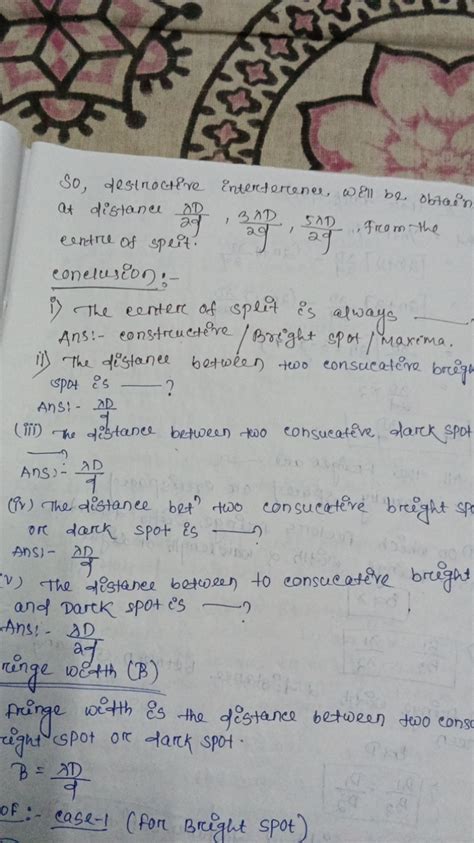 So, destroctive interference, will be obtain
at distance λD/2d, 3λD/2d, 5λD/2d, from the
centre of split.
conclusion:-
i) The center of split is always ———
Ans:- constructive / Bright spot / Maxima.
ii) The distance between two consucative bright
spot is ——?
Ans:- λD/d
(iii) The distance between two consucative darck spot
——?
Ans:- λD/d
(iv) The distance betn two consucative bright sp
or dark spot is ——?
Ans:- λD/d
v) The distance between to consucative bright
and Darck spot is ——?
Ans:- λD/2d
ringe width (B)
fringe width is the distance between two consu
right spot or dark spot.
B = λD/d
of:- case-1 (for Bright spot)